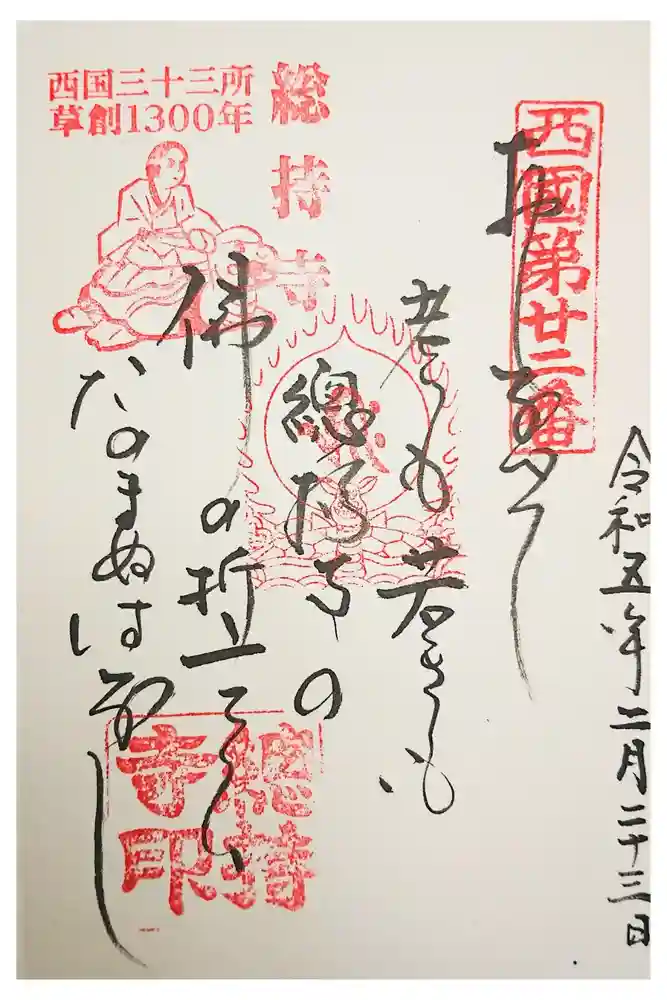 令和五年二月二十三日
西國第廿二番
おしなへて
老も若きも
總持寺の
佛の誓
たのまぬはなし
総持寺
西国三十三所
草創1300年
總持
寺印